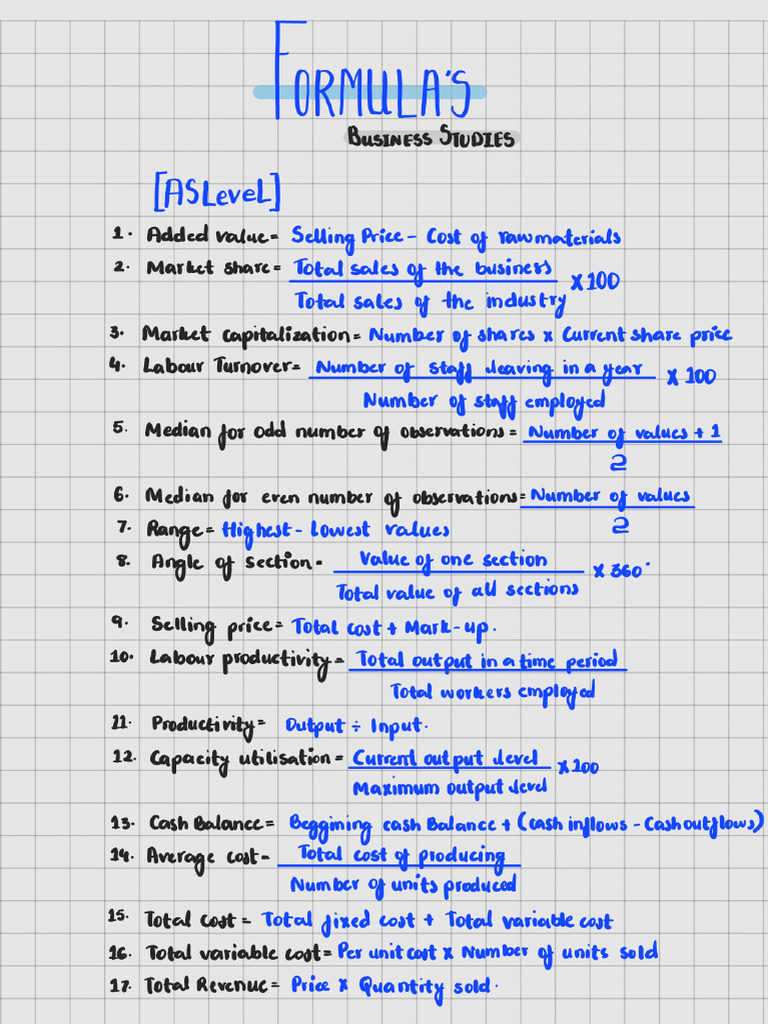 FORMULA'S
BUSINESS STUDIES
[AS LeveL]
1. Added value = Selling Price - Cost of raw materials
2. Market share = Total sales of the business
Total sales of the industry
x 100
3. Market capitalization = Number of shares x Current share price
4. Labour Turnover = Number of staff leaving in a year
Number of staff employed
x 100
5. Median for odd number of observations = Number of values + 1
2
6. Median for even number of observations = Number of values
2
7. Range = Highest - Lowest values
8. Angle of section = Value of one section
Total value of all sections
x 360°
9. Selling price = Total cost + Mark-up.
10. Labour productivity = Total output in a time period
Total workers employed
11. Productivity = Output ÷ Input.
12. Capacity utilisation = Current output level
Maximum output level
x 100
13. Cash Balance = Beggining cash Balance + (cash inflows - Cash outflows)
14. Average cost = Total cost of producing
Number of units produced
15. Total Cost = Total fixed cost + Total variable cost
16. Total variable cost = Per unit cost x Number of units sold
17. Total Revenue = Price x Quantity sold.